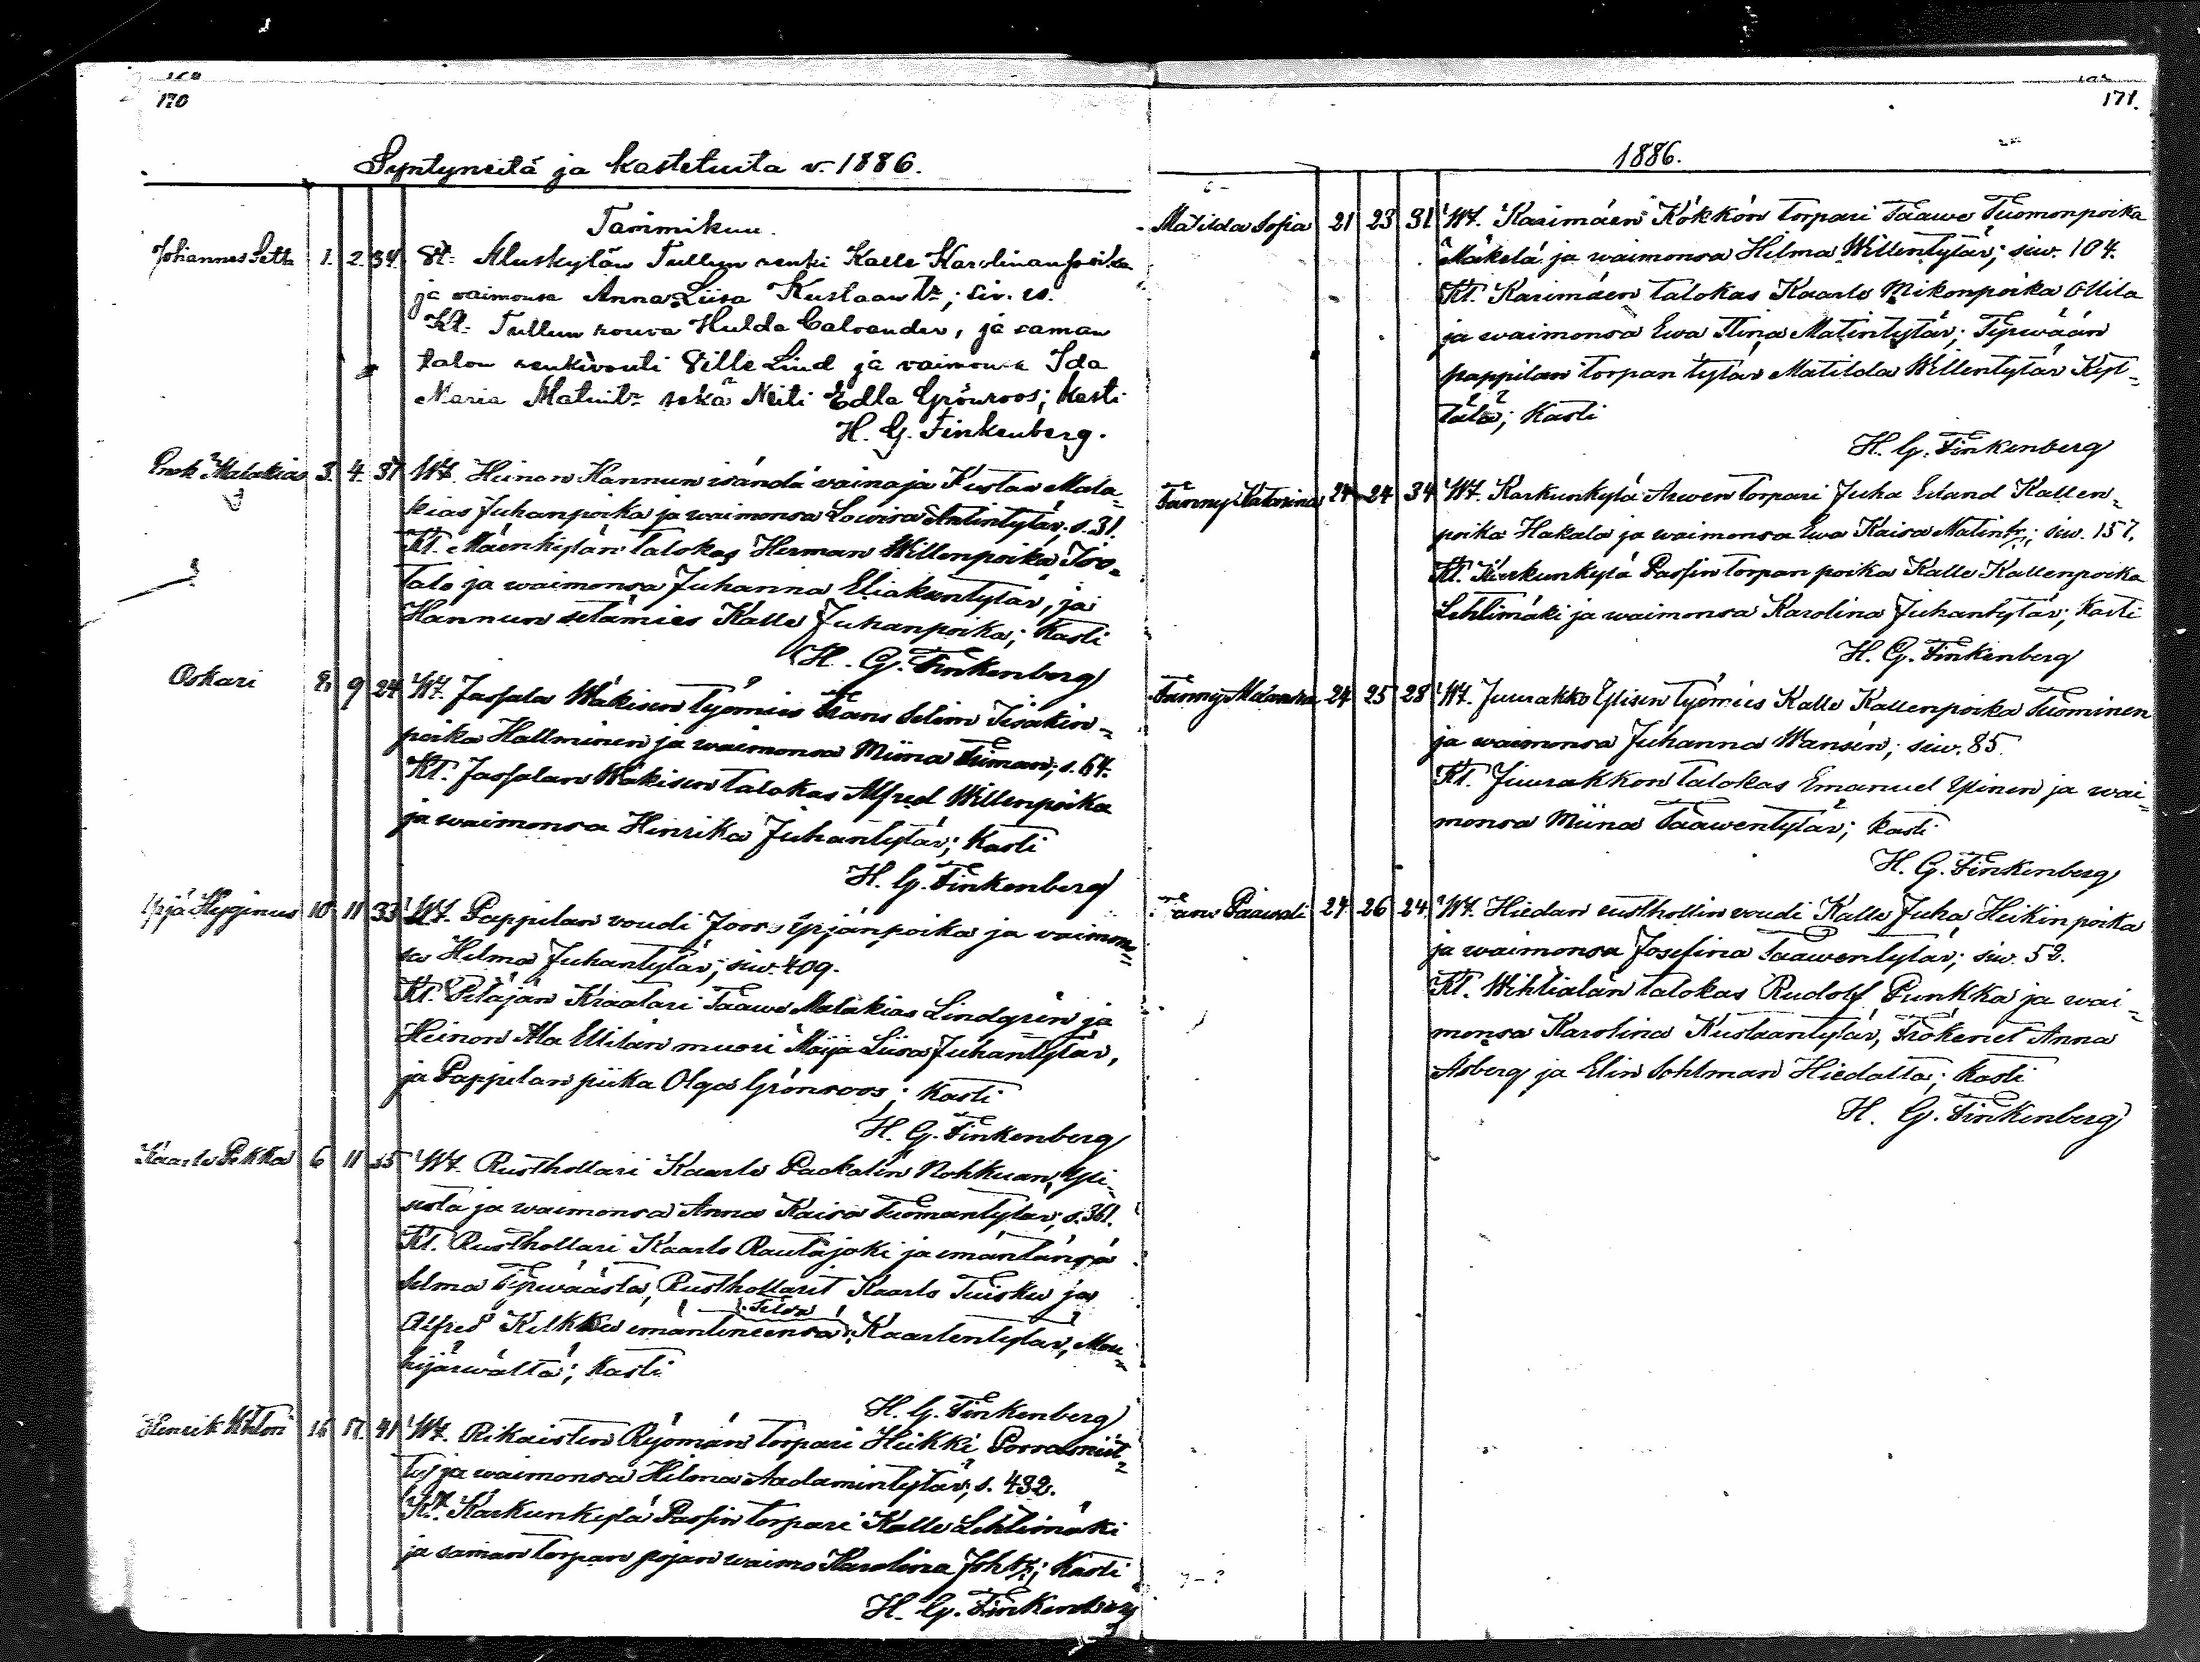 170
Syntyneitä ja kastetuita v. 1886.
Tammikuu.
Johannes Seth 1. 2. 34. St. Aluskylän Tullun renki Kalle Karolinanpoika
ja vaimonsa Anna Liisa Kustaantr; siv.
Kt. Tullun rouva Hulda Calvander, ja saman
talon renkivouti Ville Lind ja vaimonsa Ida
Maria Matintr sekä Neiti Edla Grönroos; kasti
H. G. Finkenberg.
Enok Malakias 3. 4. 37 Wt. Heinon Hannun isäntä vainaja Kustaa Mala-
kias Juhanpoika ja waimonsa Lowisa Antintytär, s. 31.
Kt. Mäenkylän talokas Herman Willenpoika Iso-
talo ja waimonsa Juhanna Eliakentytär, ja
Hannun setämies Kalle Juhanpoika; Kasti
H. G. Finkenberg
Oskari 8. 9 24 Wt. Jaffala Wäkisen työmies Frans Selim Iisakin-
poika Hallminen ja waimonsa Miina Friman; s. 64.
Kt. Jaffalan Wäkisen talokas Alfred Willenpoika
ja waimonsa Hinrika Juhantytär; Kasti
H. G. Finkenberg
Yrjö Hyginus 10 11 33 Wt. Pappilan voudi Joos. Yrjänpoika ja vaimon-
sa Helma Juhantytär; siw. 409.
Kt. Kraatari Taawe Malakias Lindgrén ja
Heinon Ala Ellilän muori Maija Liisa Juhantytär,
ja Pappilan piika Olga Grönroos; Kasti
H. G. Finkenberg
Kaarlo Pekka 6 11 35 Wt. Rusthollari Kaarlo Packalén Nohkuan Yli-
sestä ja waimonsa Anna Kaisa Tuomantytär; s. 361.
Kt. Rusthollari Kaarlo Rautajoki ja emäntänsä
Selma Tyrwäästä, Rusthollarit Kaarlo Tuisku ja
Alfred Kilkku emäntineensä Kaarlentytär, Mou-
hijärwältä; Kasti
H. G. Finkenberg
Henrik 16 17. 41 Wt. Rikaisten Ryömän torpari Heikki Porraniit-
ty ja waimonsa Hilma Aadamintytär, s. 432.
Kt. Karkunkylä Paffin torpari Kalle Lehtimäki
ja saman torpan pojan waimo Karolina Joh.tr; Kasti
H. G. Finkenberg
171.
1886.
Matilda Sofia 21 23 31 Wt. Karimäen Kökkön torpari Taawe Tuomonpoika
Mäkelä ja waimonsa Hilma Willentytär; siw. 104.
Kt. Karimäen talokas Kaarlo Mikonpoika Ollila
ja waimonsa Ewa Stina Matintytär; Tyrwään
pappilan torpan tytär Matilda Willentytär Kyt-
tälä; Kasti
H. G. Finkenberg
Fanny Katarina 24 24 34 Wt. Karkunkylä Arwen torpari Juha Erland Kallen-
poika Hakala ja waimonsa Ewa Kaisa Matintr; siw. 157.
Kt. Karkunkylä Paffin torpan poika Kalle Kallenpoika
Lehtimäki ja waimonsa Karolina Juhantytär; Kasti
H. G. Finkenberg
Fanny 24 25 28 Wt. Juurakko Ylisen työmies Kalle Kallenpoika Tuominen
ja waimonsa Juhanna Wansén; siw. 85.
Kt. Juurakkon talokas Emanuel Ylinen ja wai-
monsa Miina Taawentytär; kasti
H. G. Finkenberg
Paawali 24 26 24 Wt. Hiedan rusthollin voudi Kalle Juha Heikinpoika
ja waimonsa Josefina Taawentytär; siw. 52.
Kt. Wihtiälän talokas Rudolf Punkka ja wai-
monsa Karolina Kustaantytär, Frökenet Anna
Asberg ja Elin Sohlman Hiedalta; Kasti
H. G. Finkenberg